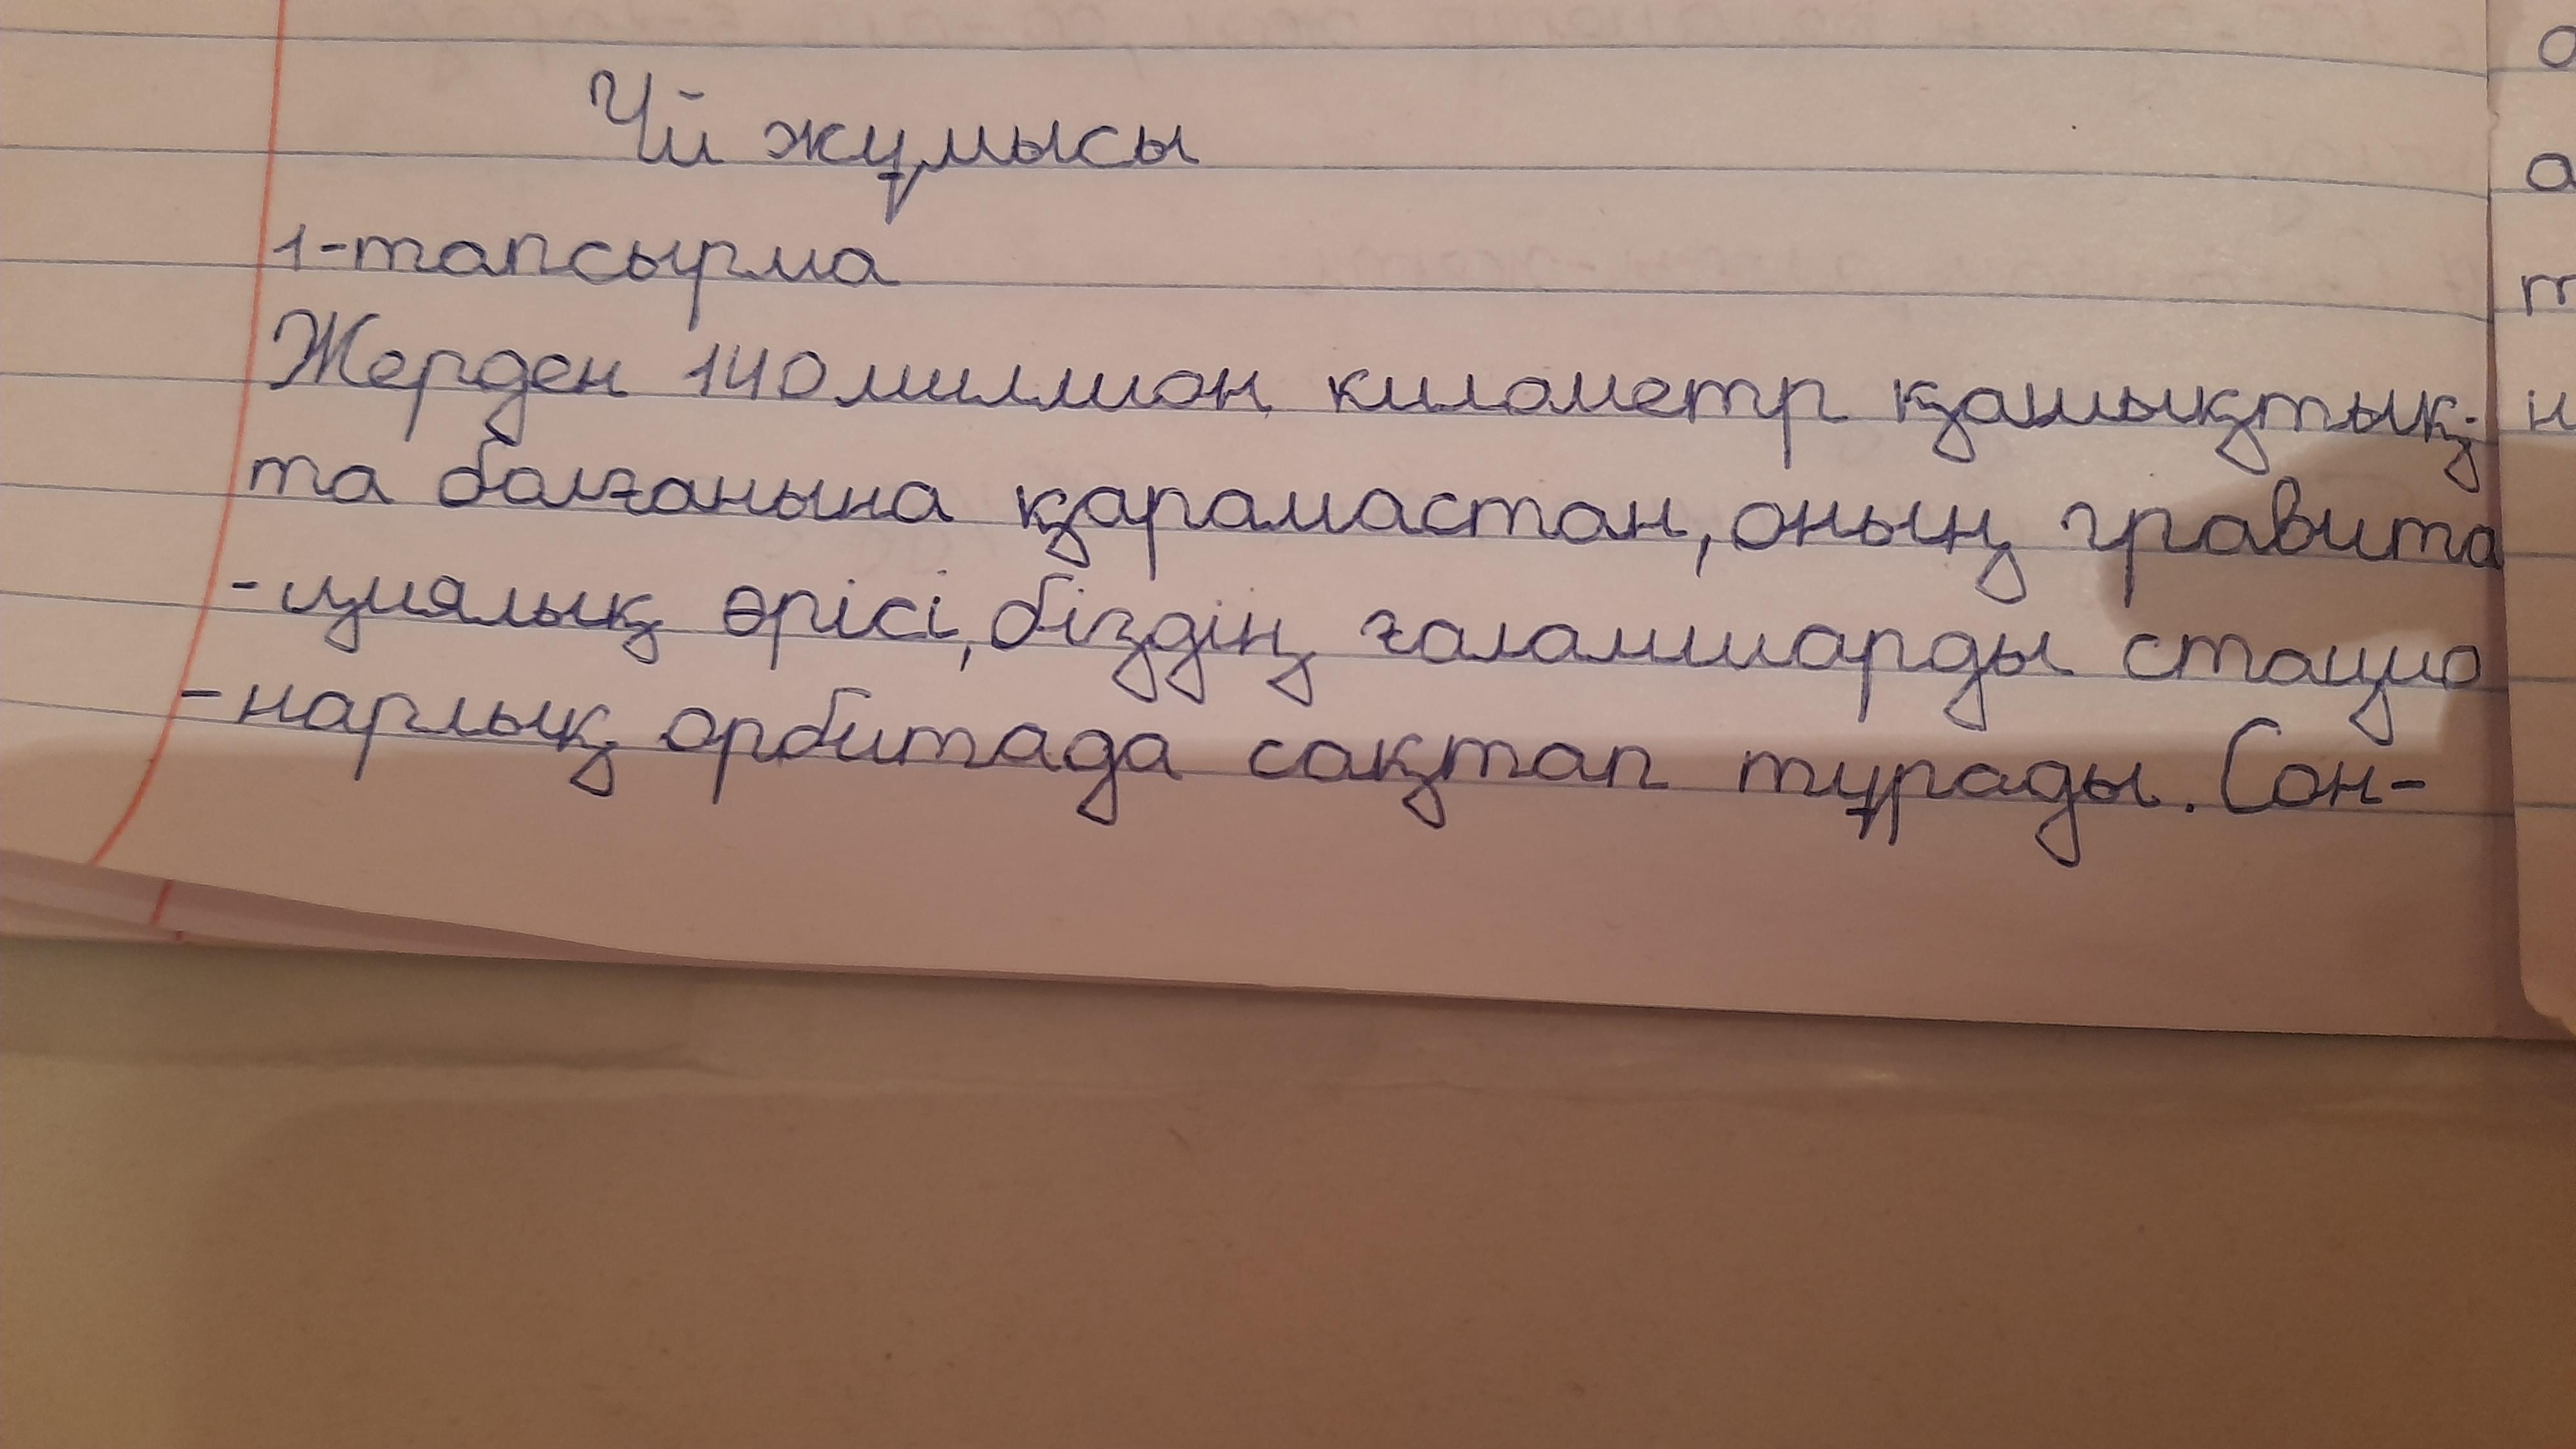 Үй жұмысы
1-тапсырма
Жерден 140 миллион километр қашықтық-
та болғанына қарамастан, оның гравита
-циялық өрісі, біздің ғаламшарды стацио
-нарлық орбитада сақтап тұрады. Сон-